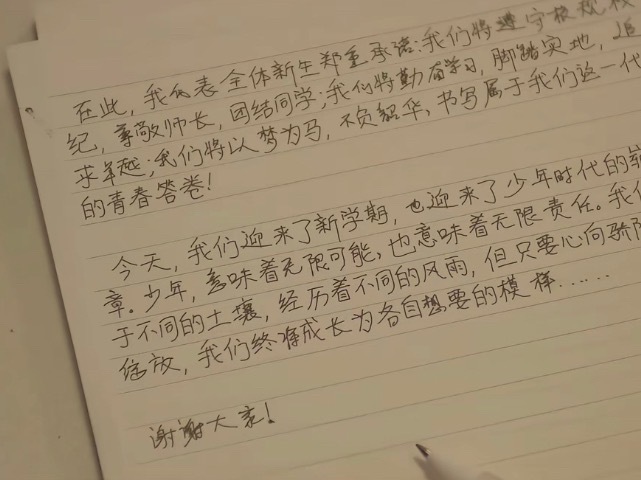 在此,我代表全体新生郑重承诺:我们将遵守校规校
纪,尊敬师长,团结同学;我们将勤奋学习,脚踏实地,追
求卓越;我们将以梦为马,不负韶华,书写属于我们这一代
的青春答卷!
今天,我们迎来了新学期,也迎来了少年时代的崭
章。少年,意味着无限可能,也意味着无限责任。我们
于不同的土壤,经历着不同的风雨,但只要心向骄阳
绽放,我们终将成长为各自想要的模样……
谢谢大家!